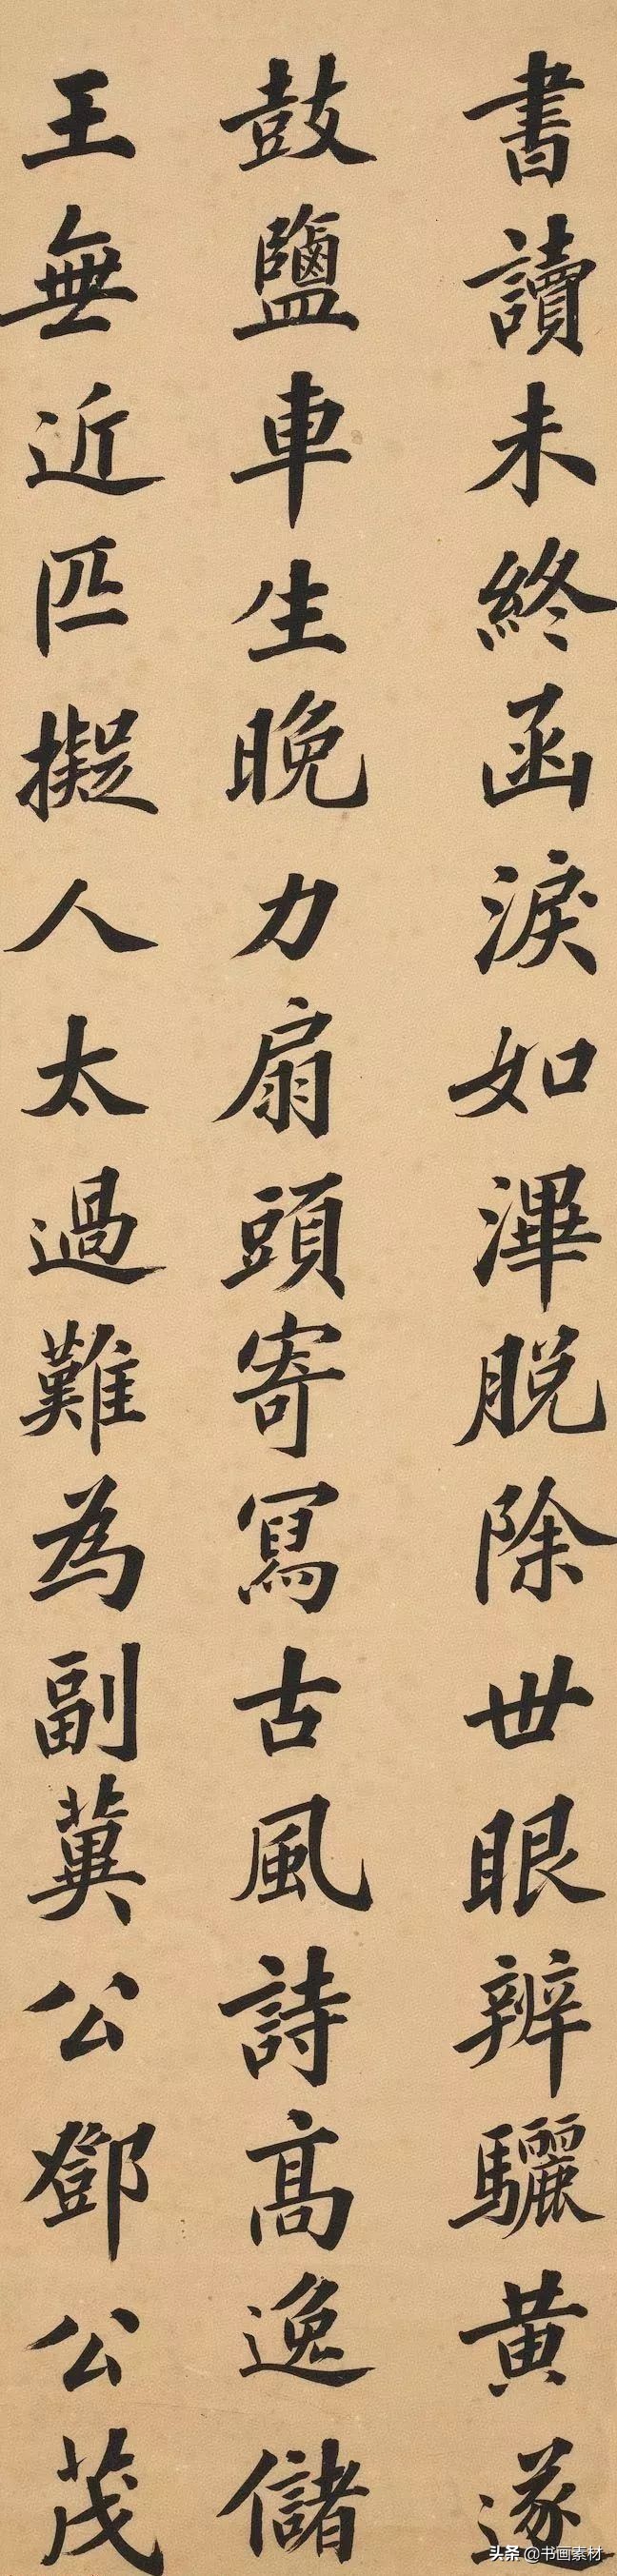 書讀未終函淚如滭脫除世眼辨驪黃遂
鼓鹽車生晚力扇頭寄寫古風詩高逸儲
王無近匹擬人太過難為副冀公鄧公茂
头条 @书画素材